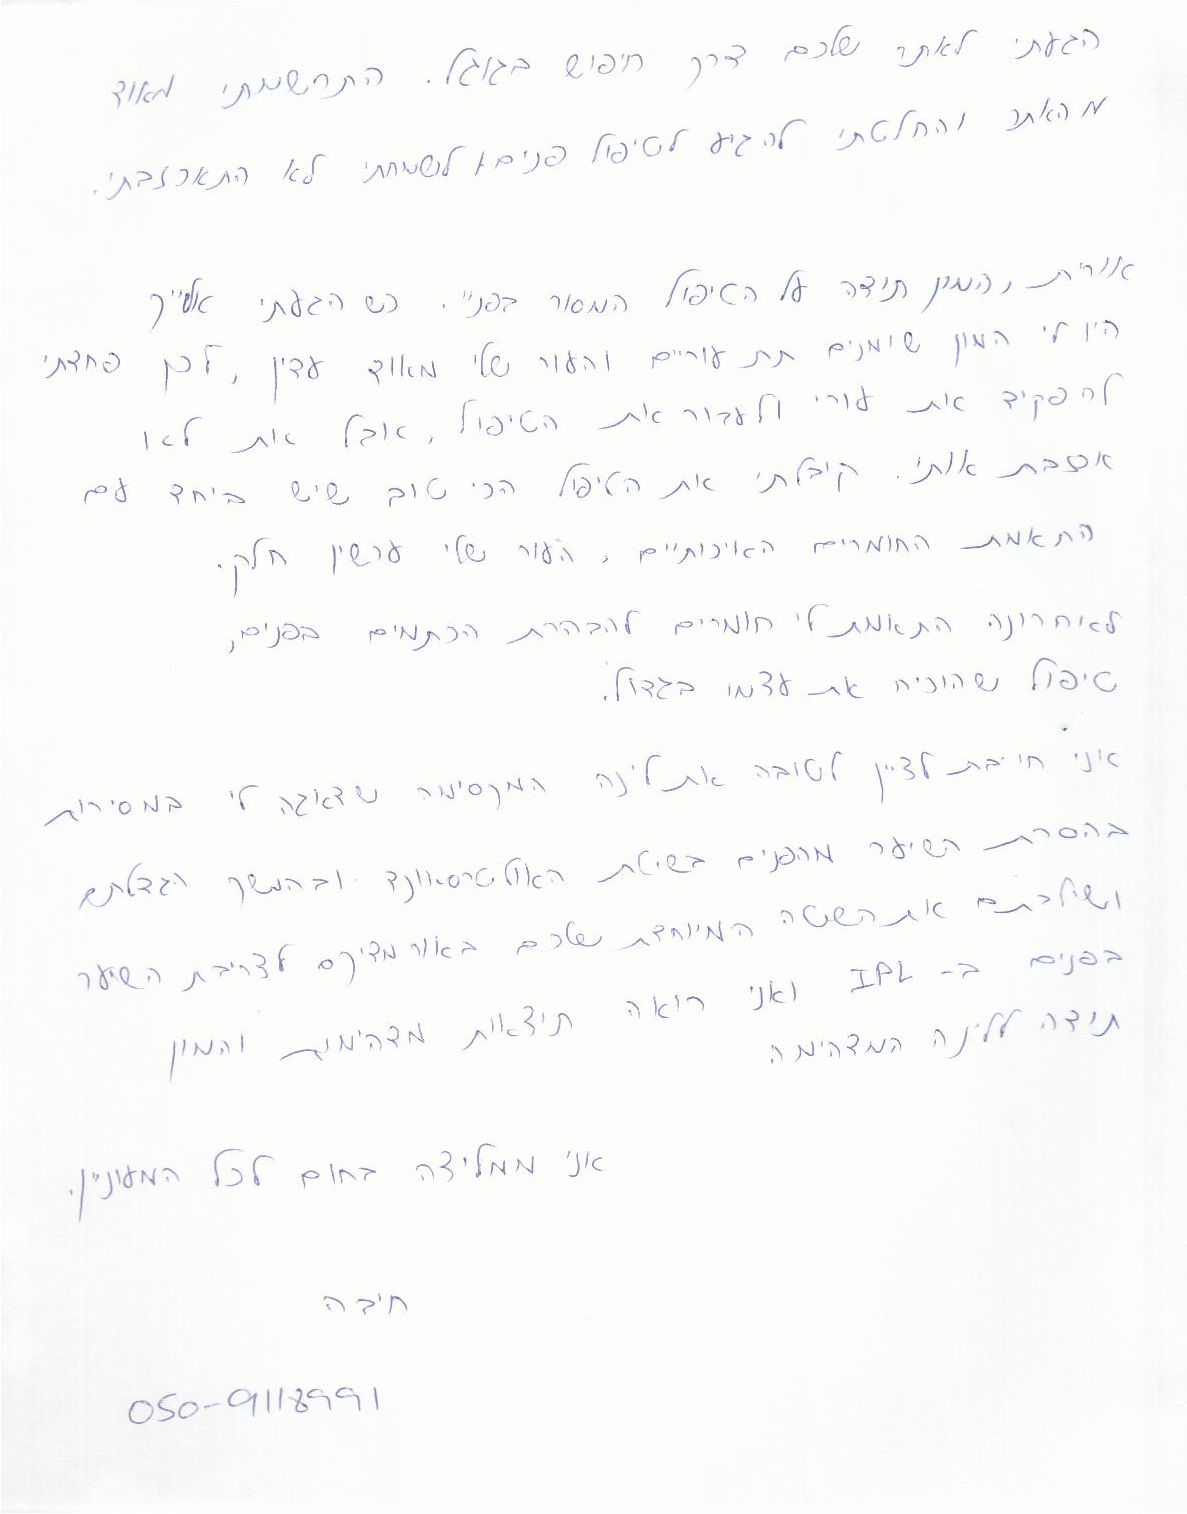 הגעתי לאתר שלכם דרך חיפוש בגוגל. התרשמתי מאוד
מהאתר והחלטתי להגיע לטיפול פנים ולשמחתי לא התאכזבתי.
אורית, המון תודה על הטיפול המסור בפניי. כש הגעתי אלייך
היו לי המון שומנים תת עוריים והעור שלי מאוד עדין, לכן פחדתי
להפקיד את עורי ולעבור את הטיפול, אבל את לא
אכזבת אותי. קיבלתי את הטיפול הכי טוב שיש ביחד עם
התאמת החומרים האיכותיים, העור שלי עכשיו חלק.
לאחרונה התאמת לי חומרים להבהרת הכתמים בפנים,
טיפול שהוכיח את עצמו בגדול.
אני חייבת לציין לטובה את לינה המקסימה שדאגה לי במסירות
בהסרת השיער מהפנים בשיטת האולטרסאונד ובהמשך הגדלתם
ושילבתם את השיטה המיוחדת שלכם באור מדיקס לצריבת השיער
בפנים ב- IPL ואני רואה תוצאות מדהימות והמון
תודה ללינה המדהימה
אני ממליצה בחום לכל המעוניין.
חיבה
050-9118991